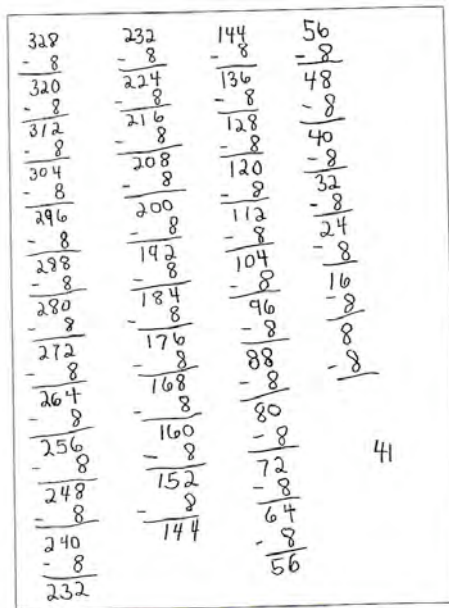 328
- 8
320
- 8
312
- 8
304
- 8
296
- 8
288
- 8
280
- 8
272
- 8
264
- 8
256
- 8
248
- 8
240
- 8
232
232
- 8
224
- 8
216
- 8
208
- 8
200
- 8
192
- 8
184
- 8
176
- 8
168
- 8
160
- 8
152
- 8
144
144
- 8
136
- 8
128
- 8
120
- 8
112
- 8
104
- 8
96
- 8
88
- 8
80
- 8
72
- 8
64
- 8
56
56
- 8
48
- 8
40
- 8
32
- 8
24
- 8
16
- 8
8
- 8
41